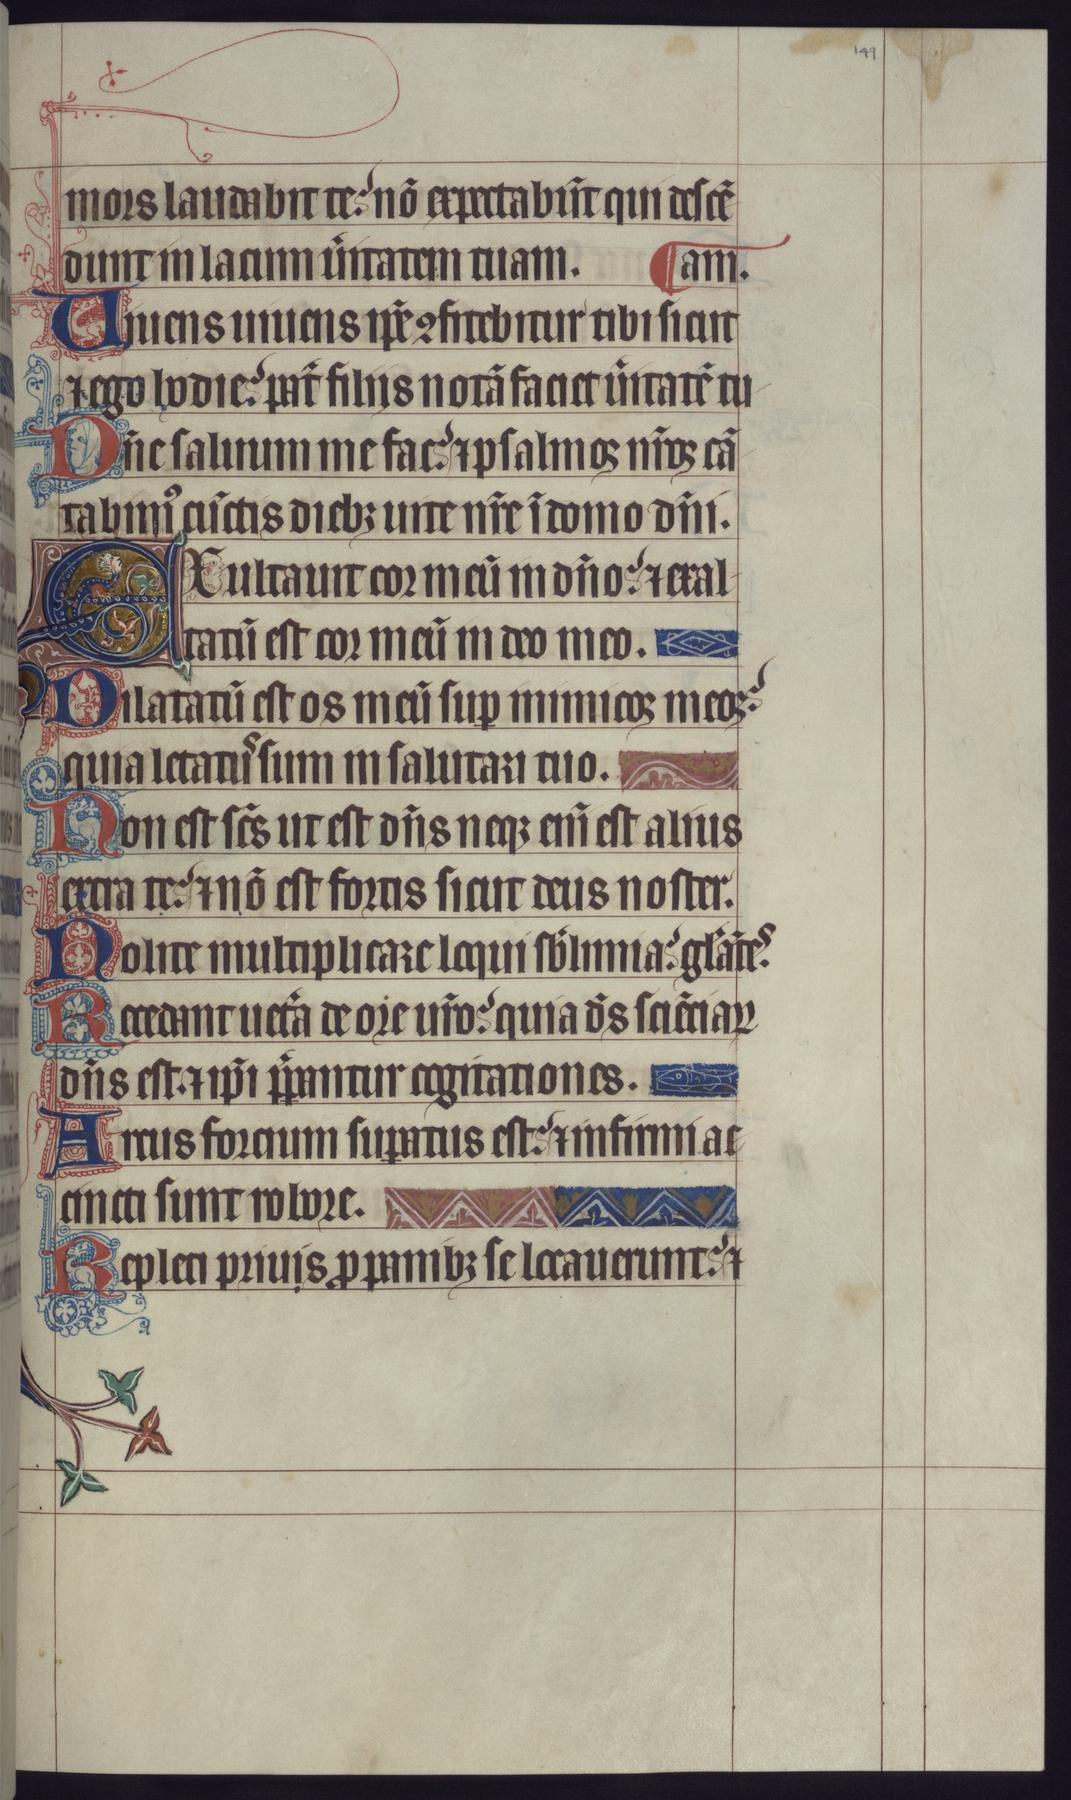 149
mors laudabit te: nō expectabūt qui descē
dunt in lacum ūitatem tuam. ¶am.
Uiuens uiuens ip̄e ꝯfitebitur tibi sicut
⁊ ego hodie: pat̄ filijs notā faciet ūitatē tu
Dn̄e saluum me fac: ⁊ psalmoꝝ nr̄oꝝ cā
tabimꝰ cūctis diebꝫ uite nr̄e ī domo dn̄i.
EXultauit cor meū in dn̄o: ⁊ exal-
tatū est cor meū in deo meo.
Dilatatū est os meū suꝑ inimicos meos:
quia letatus sum in salutari tuo.
Non est sc̄s ut est dn̄s neqꝫ enī est alius
extra te: ⁊ nō est fortis sicut deus noster.
Nolite multiplicare loqui sb̄limia: gl̄ātes
Recedant uet̄a de ore ur̄o: quia d̄s sciēciaꝝ
dn̄s est. ⁊ ip̄i p̄parantur cogitationes.
Arcus forcium suꝑatus est: ⁊ infirmi ac
cincti sunt robore.
Repleti prius ꝓ panibꝫ se locauerunt: ⁊